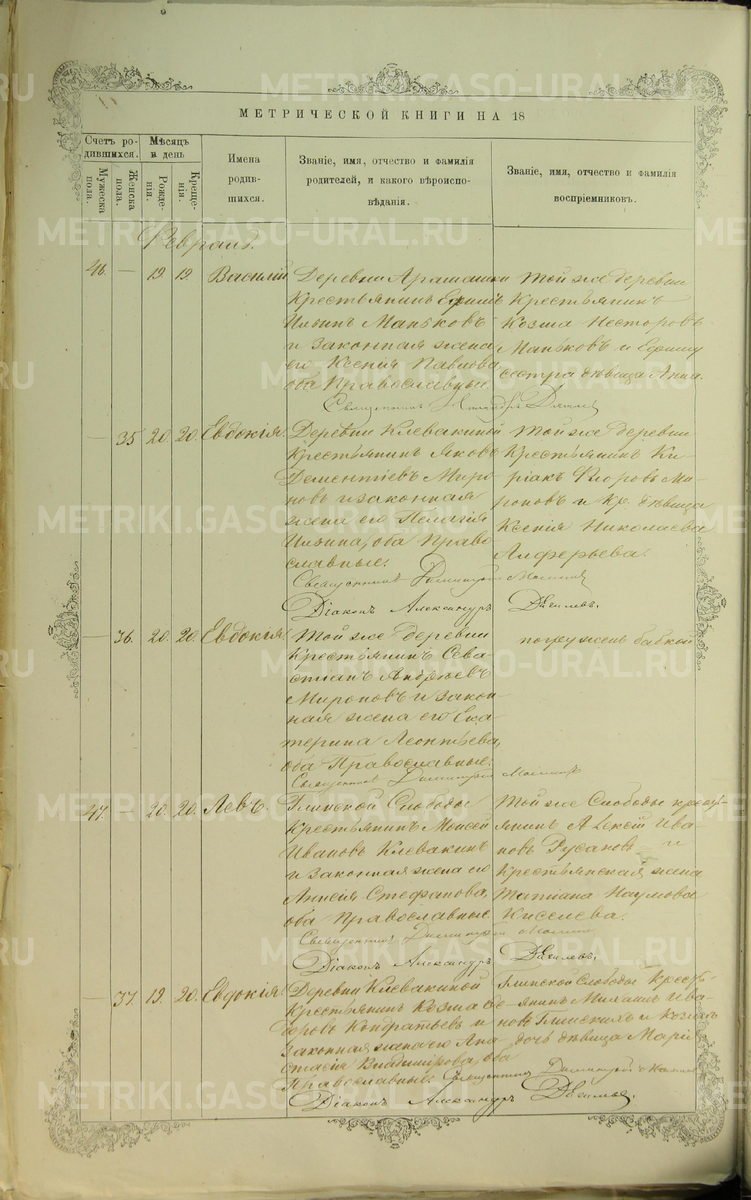 МЕТРИЧЕСКОЙ КНИГИ НА 18
Счетъ родившихся.
Мужеска пола.
Женска пола.
Мѣсяцъ и день
Рожденія.
Крещенія.
Имена родившихся.
Званіе, имя, отчество и фамилія родителей, и какого вѣроисповѣданія.
Званіе, имя, отчество и фамилія воспріемниковъ.
Февраль.
46. — 19. 19. Василій
Деревни Арамашки
Крестьянинъ Ефимъ
Ильинъ Маньковъ
и законная жена
его Ксенія Павлова
оба Православные.
Той же деревни
Крестьянинъ
Козма Несторовъ
Маньковъ и
сестра дѣвица Анна.
Священникъ
— 35 20. 20. Евдокія.
Деревни Клевакиной
Крестьянинъ Яковъ
Дементіевъ Миро-
новъ и законная
жена его Пелагія
Ильина, оба Право-
славные.
Той же деревни
Крестьянинъ Ки-
ріакъ Флоровъ Ми-
роновъ и Кр. дѣвица
Ксенія Николаева
Алферьева.
Священникъ Димитрій
Діаконъ Александръ
— 36. 20. 20. Евдокія.
Той же деревни
Крестьянинъ Сева-
стіанъ Андреевъ
Мироновъ и закон-
ная жена его Ека-
терина Леонтьева,
оба Православные.
погружена бабкой
Священникъ Димитрій
47. — 20. 20. Левъ.
Глинской Слободы
Крестьянинъ Моисей
Ивановъ Клевакинъ
и законная жена его
Анисія Стефанова,
оба Православные.
Той же Слободы кресть-
янинъ Алексѣй Ива-
новъ Русаковъ и
Крестьянская жена
Татіана Наумова
Киселева.
Священникъ Димитрій
Діаконъ Александръ
— 37. 19. 20. Евдокія.
Деревни Клевакиной
Крестьянинъ Козма
Кондратьевъ и
законная жена его Ана-
стасія Владимірова, оба
Православные.
Глинской Слободы Кресть-
янинъ Михаилъ Ива-
новъ Глинскихъ и
дочь дѣвица Марія
Священникъ Димитрій
Діаконъ Александръ
METRIKI.GASO-URAL.RU